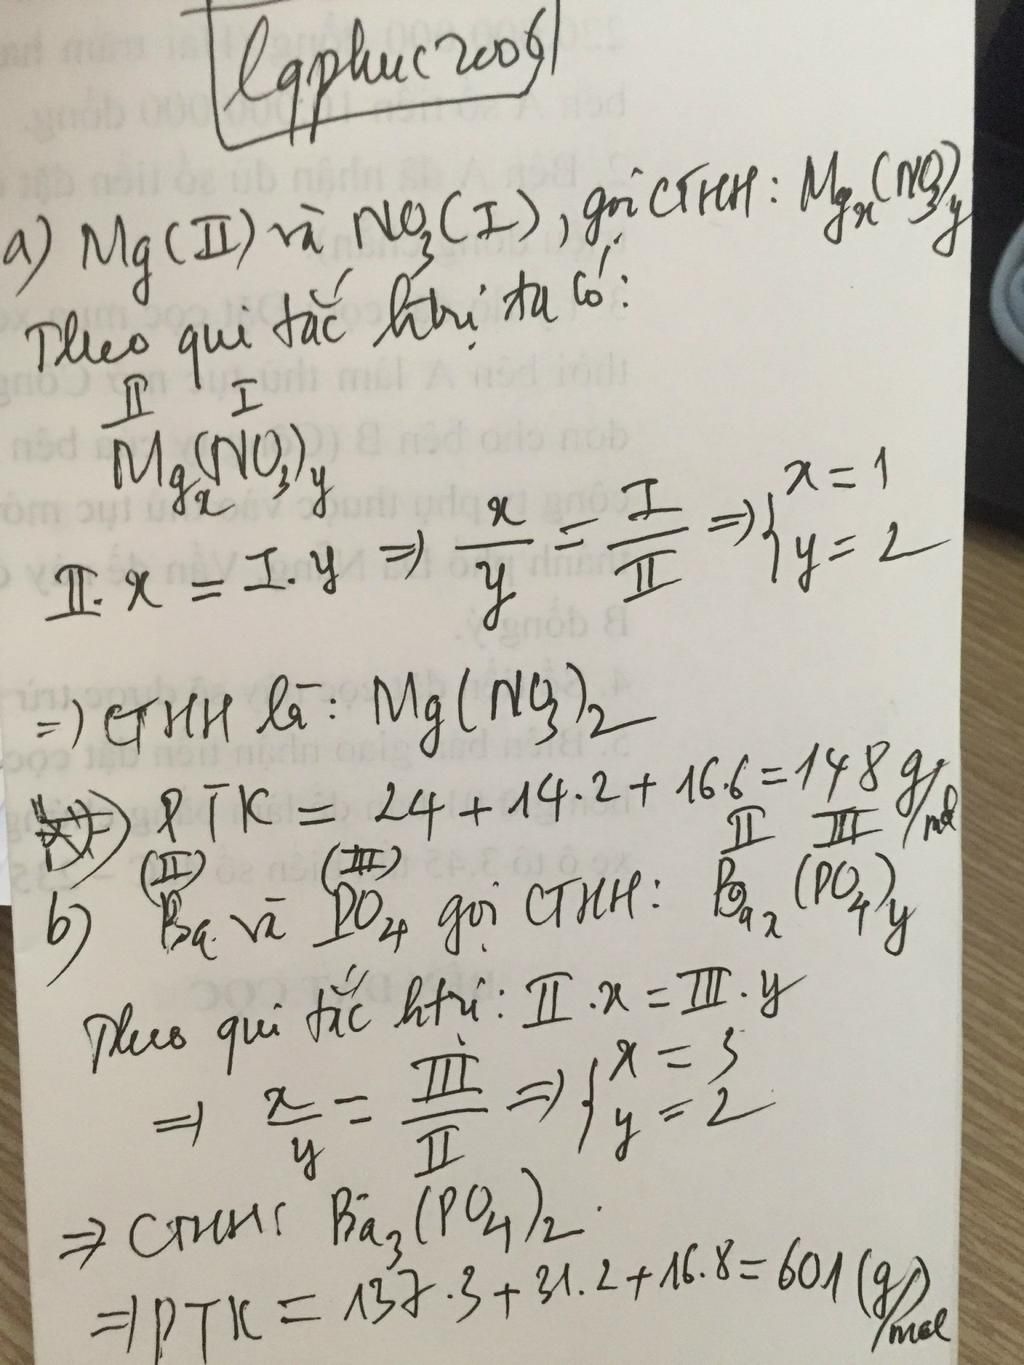 lqphuc2006
a) Mg(II) và NO3(I), gọi CTHH: Mgx(NO3)y
Theo qui tắc htrị ta có:
II I
Mgx(NO3)y
II. x = I. y => x/y = I/II => { x = 1
y = 2
=) CTHH là: Mg(NO3)2
PTK = 24 + 14.2 + 16.6 = 148 g/mol
(II) (III) II III
b) Ba và PO4 gọi CTHH: Bax (PO4)y
Theo qui tắc htrị: II .x = III. y
=> x/y = III/II => { x = 3
y = 2
=> CTHH: Ba3(PO4)2.
=> PTK = 137.3 + 31.2 + 16.8 = 601 (g/mol)